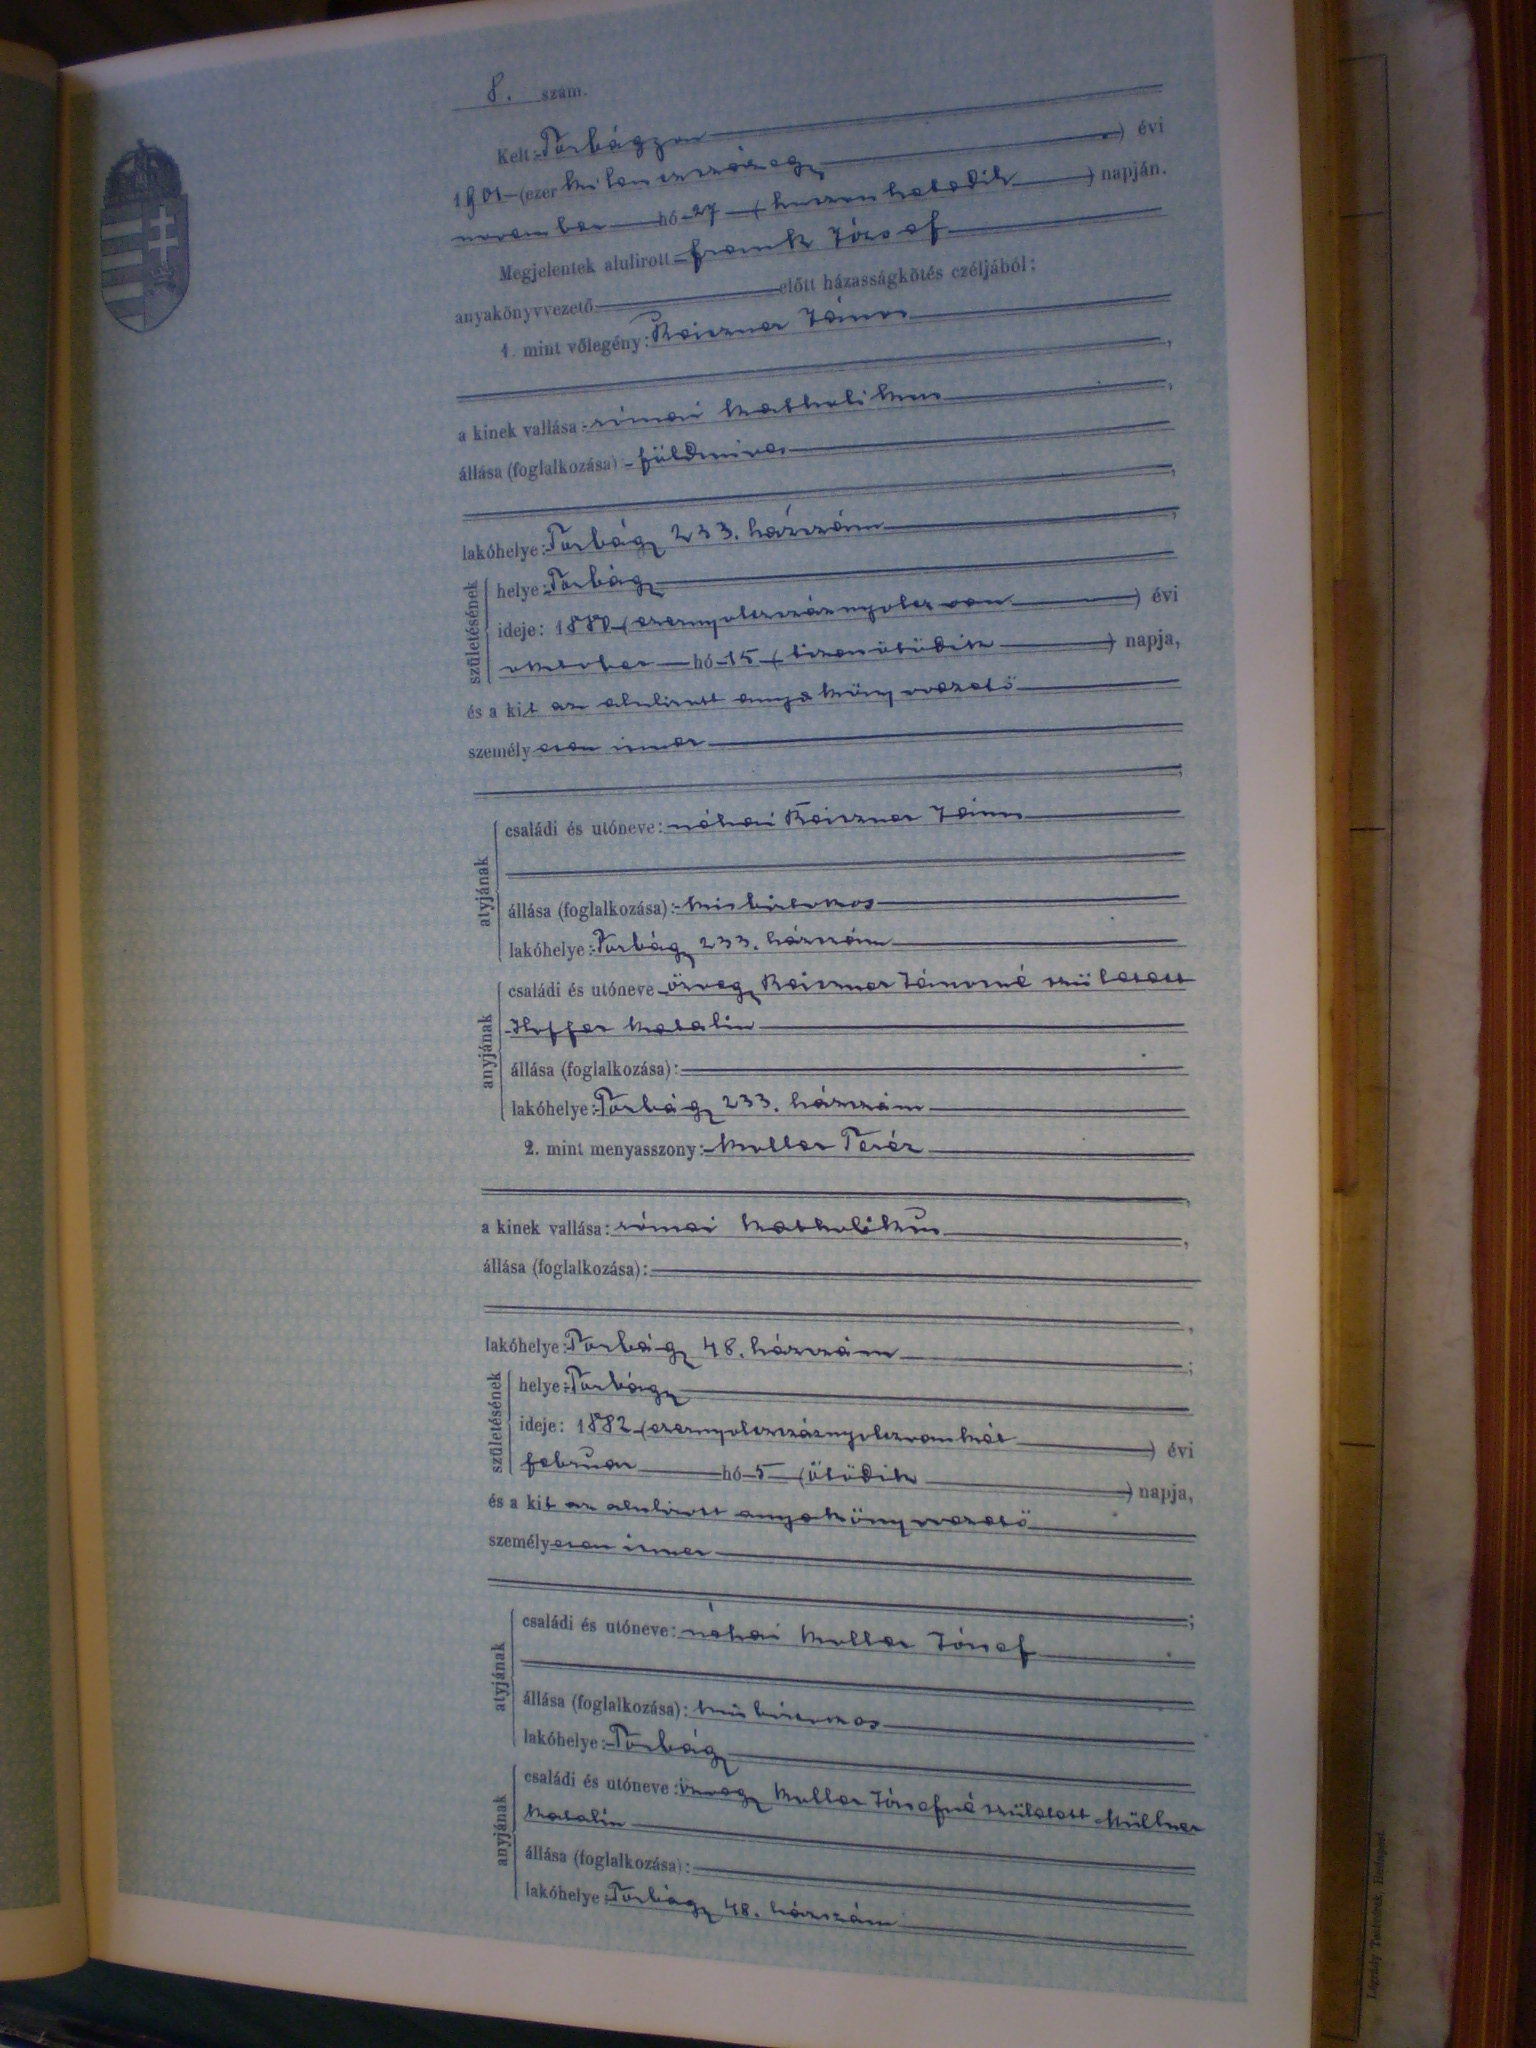 8. szám.
Kelt: Torbágyon
1901 (ezer kilenczszázegy) évi
november hó 27 (huszonhetedik) napján.
Megjelentek alulirott Frank József
anyakönyvvezető előtt házasságkötés czéljából:
1. mint vőlegény: Reiszner János
a kinek vallása: római katholikus
állása (foglalkozása) földmives
lakóhelye: Torbágy 233. házszám
születésének
helye: Torbágy
ideje: 1880 (ezernyolczszáznyolczvan) évi
oktober hó 15 (tizenötödik) napja,
és a kit az alulirott anyakönyvvezető
személyesen ismer
atyjának
családi és utóneve: néhai Reiszner János
állása (foglalkozása): kisbirtokos
lakóhelye: Torbágy 233. házszám
anyjának
családi és utóneve özvegy Reiszner Jánosné született
Hoffer Katalin
állása (foglalkozása):
lakóhelye: Torbágy 233. házszám
2. mint menyasszony: Keller Teréz
a kinek vallása: római katholikus
állása (foglalkozása):
lakóhelye: Torbágy 48. házszám
születésének
helye: Torbágy
ideje: 1882 (ezernyolczszáznyolczvankét) évi
február hó 5 (ötödik) napja,
és a kit az alulirott anyakönyvvezető
személyesen ismer
atyjának
családi és utóneve: néhai Keller József
állása (foglalkozása): kisbirtokos
lakóhelye: Torbágy
anyjának
családi és utóneve: özvegy Keller Józsefné született Müllner
Katalin
állása (foglalkozása):
lakóhelye: Torbágy 48. házszám
Budapest